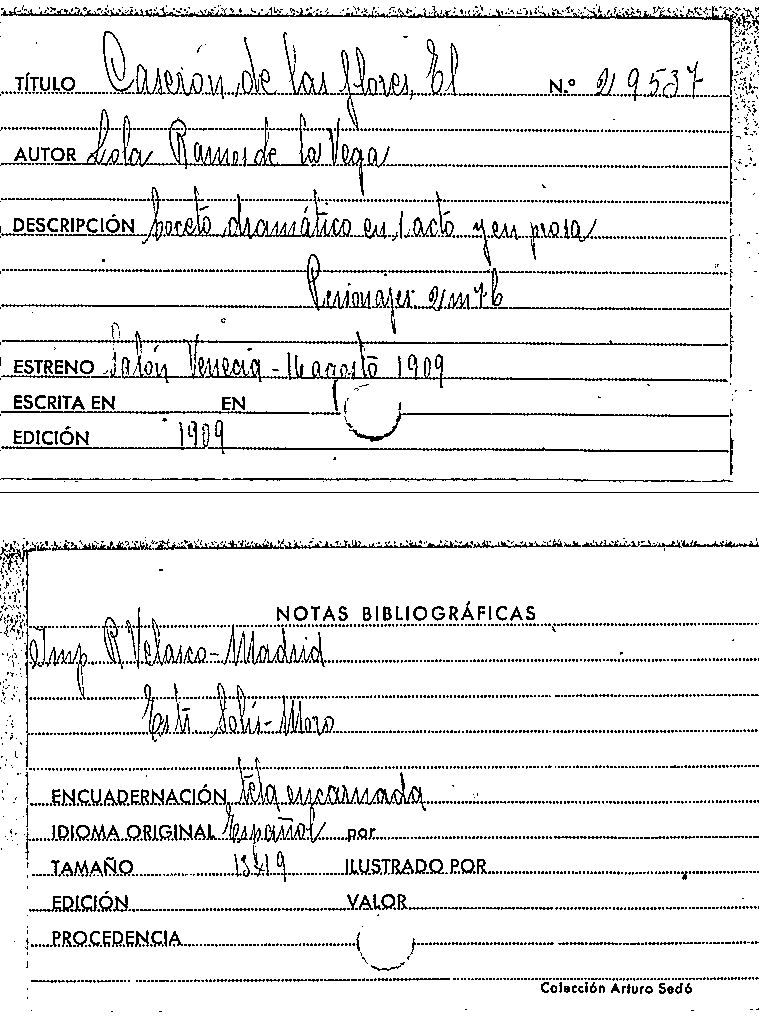 TÍTULO Caserón de las flores, El N.º 29537
AUTOR Lola Ramos de la Vega
DESCRIPCIÓN boceto dramático en 1 acto y en prosa
Personajes 2m 7h
ESTRENO Salón Venecia - 16 agosto 1909
ESCRITA EN EN
EDICIÓN 1909
NOTAS BIBLIOGRÁFICAS
Imp R Velasco - Madrid
Estr. Solís - Moro
ENCUADERNACIÓN tela encarnada
IDIOMA ORIGINAL Español por
TAMAÑO 13x19 ILUSTRADO POR
EDICIÓN VALOR
PROCEDENCIA
Colección Arturo Sedó